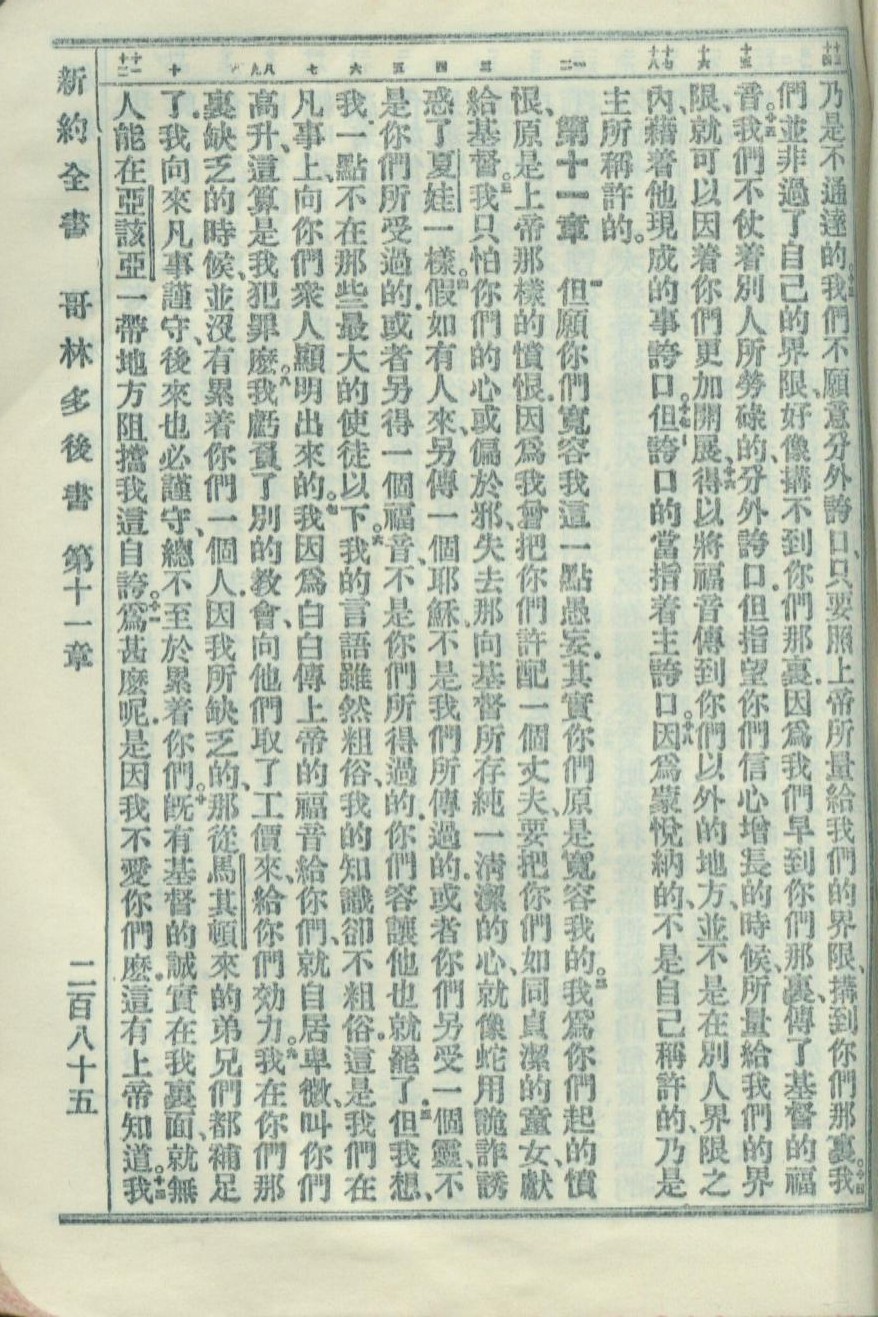 十三 十四 十五 十六 十七 十八 一 二 三 四 五 六 七 八 九 十 十一 十二
乃是不通達的。十三我們不願意分外誇口、只要照上帝所量給我們的界限、搆到你們那裏。十四我
們並非過了自己的界限、好像搆不到你們那裏.因爲我們早到你們那裏、傳了基督的福
音。十五我們不仗着別人所勞碌的、分外誇口.但指望你們信心增長的時候、所量給我們的界
限、就可以因着你們更加開展、十六得以將福音傳到你們以外的地方、並不是在別人界限之
內、藉着他現成的事誇口。十七但誇口的當指着主誇口。十八因爲蒙悅納的、不是自己稱許的、乃是
主所稱許的。
第十一章 一但願你們寬容我這一點愚妄.其實你們原是寬容我的。二我爲你們起的憤
恨、原是上帝那樣的憤恨.因爲我曾把你們許配一個丈夫、要把你們如同貞潔的童女、獻
給基督。三我只怕你們的心或偏於邪、失去那向基督所存純一清潔的心、就像蛇用詭詐誘
惑了夏娃一樣。四假如有人來、另傳一個耶穌、不是我們所傳過的.或者你們另受一個靈、不
是你們所受過的.或者另得一個福音、不是你們所得過的.你們容讓他也就罷了。五但我想、
我一點不在那些最大的使徒以下。六我的言語雖然粗俗、我的知識卻不粗俗.這是我們在
凡事上、向你們衆人顯明出來的。七我因爲白白傳上帝的福音給你們、就自居卑微、叫你們
高升、這算是我犯罪麽。八我虧負了別的教會、向他們取了工價來、給你們効力。九我在你們那
裏缺乏的時候、並沒有累着你們一個人.因我所缺乏的、那從馬其頓來的弟兄們都補足
了.我向來凡事謹守、後來也必謹守、總不至於累着你們。十旣有基督的誠實在我裏面、就無
人能在亞該亞一帶地方阻擋我這自誇。十一爲甚麽呢.是因我不愛你們麽.這有上帝知道。十二我
新約全書 哥林多後書 第十一章 二百八十五